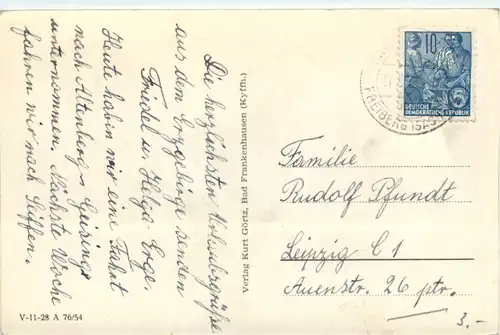 Die herzlichsten Urlaubsgrüße
aus dem Erzgebirge senden
Friedel u. Helga Erge.
Heute haben wir eine Fahrt
nach Altenberg u. Geising
unternommen. Nächste Woche
fahren wir nach Seiffen.
V-11-28 A 76/54
Verlag Kurt Görtz, Bad Frankenhausen (Kyffh.)
10
DEUTSCHE
DEMOKRATISCHE REPUBLIK
FREIBERG (SACHS
Familie
Rudolf Pfundt
Leipzig C 1
Auenstr. 26 ptr.
3.-